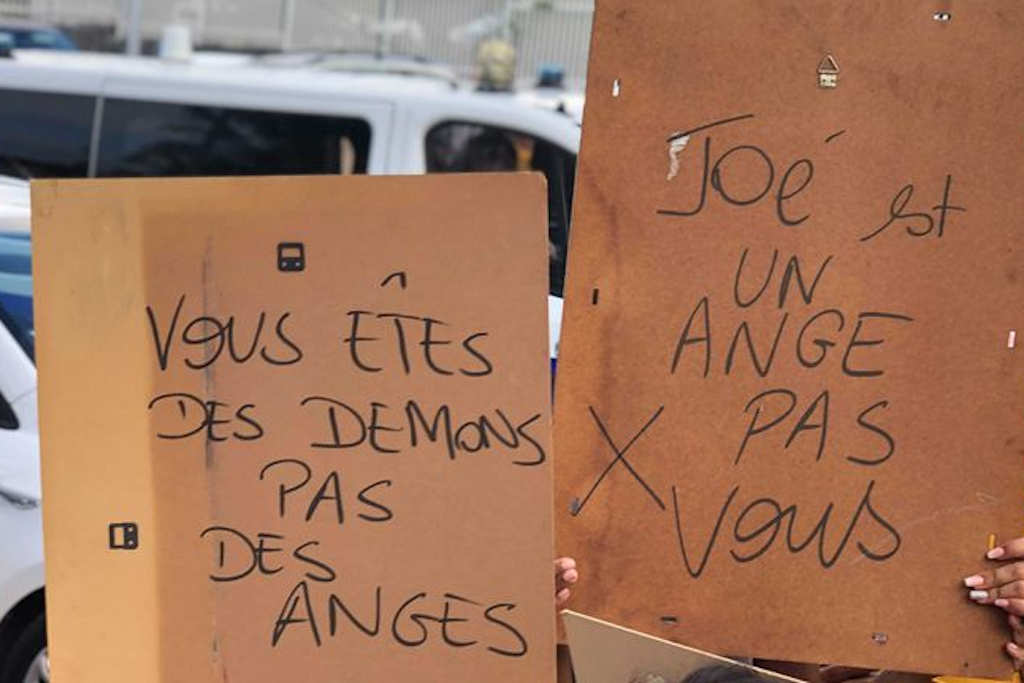 VOUS ÊTES
DES DEMONS
PAS
DES
ANGES
JOé est
UN
ANGE
X PAS
VOUS